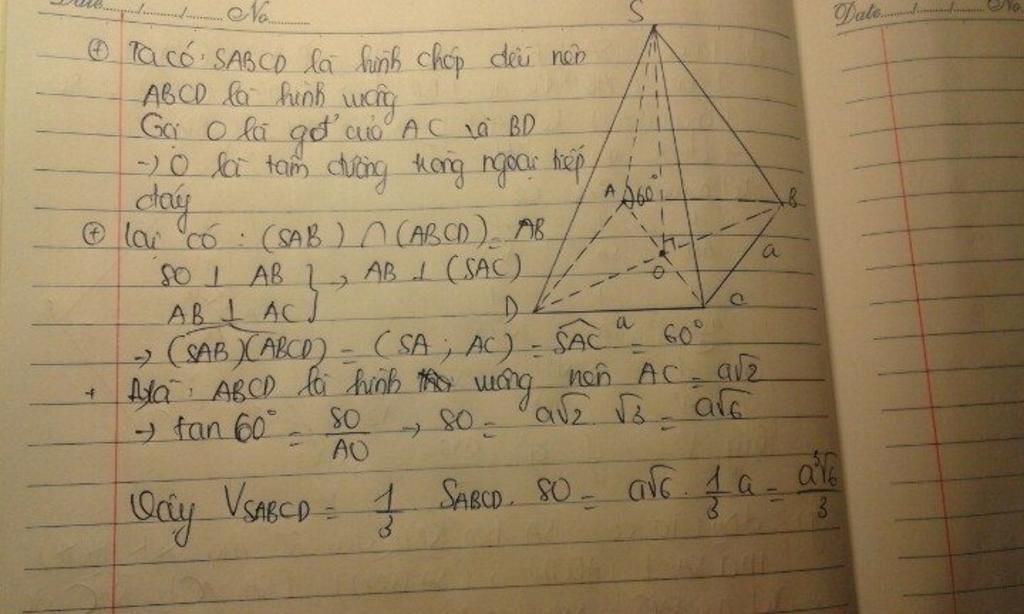 Date / / No.
Date / / No
⊕ Ta có: SABCD là hình chóp đều nên
ABCD là hình vuông
Gọi O là gđ của AC và BD
→ O là tâm đường tròng ngoại tiếp
đáy
⊕ Lại có: (SAB) ∩ (ABCD) = AB
SO ⊥ AB
AB ⊥ AC } → AB ⊥ (SAC)
→ (SAB)(ABCD) = (SA; AC) = SAC = 60°
+ Mà: ABCD là hình vuông nên AC = a√2
→ tan 60° = SO/AO → SO = a√2 . √3 = a√6
Vậy V_SABCD = 1/3 S_ABCD . SO = a√6 . 1/3 a = a³√6/3
S
A 60°
B
O
a
D
C
a